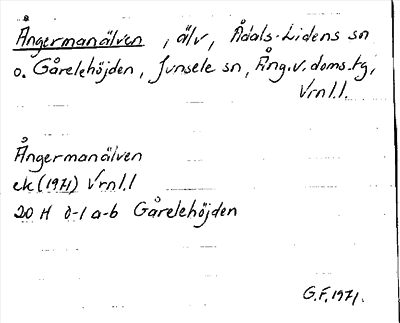 Ångermanälven, älv, Ådals-Lidens sn
o. Gårelehöjden, Junsele sn, Ång. v. doms. tg,
Vrnl.l.
Ångermanälven
ek (1971) Vrnl.l
20 H 0-1 a-b Gårelehöjden
G.F. 1971.